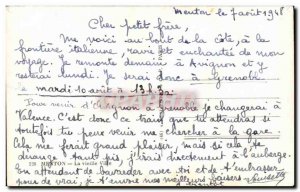 Menton le 7 août 1958
Cher petit frère,
Me voici au bout de la côte, à la
frontière italienne, ravie et enchantée de mon
voyage. Je remonte demain à Avignon et y
resterai lundi. Je serai donc à Grenoble
mardi 10 août à
Pour venir d'Avignon à Grenoble je changerai à
Valence. C'est donc ce train que tu attendras si
toutefois tu peux venir me chercher à la gare
Cela me ferait grand plaisir, mais si cela te
dérange, tant pis, j'irai directement à l'auberge.
En attendant de bavarder avec toi et de t'embrasser
pour de vrai, je t'envoie mes meilleurs baisers
MENTON - La vieille Ville